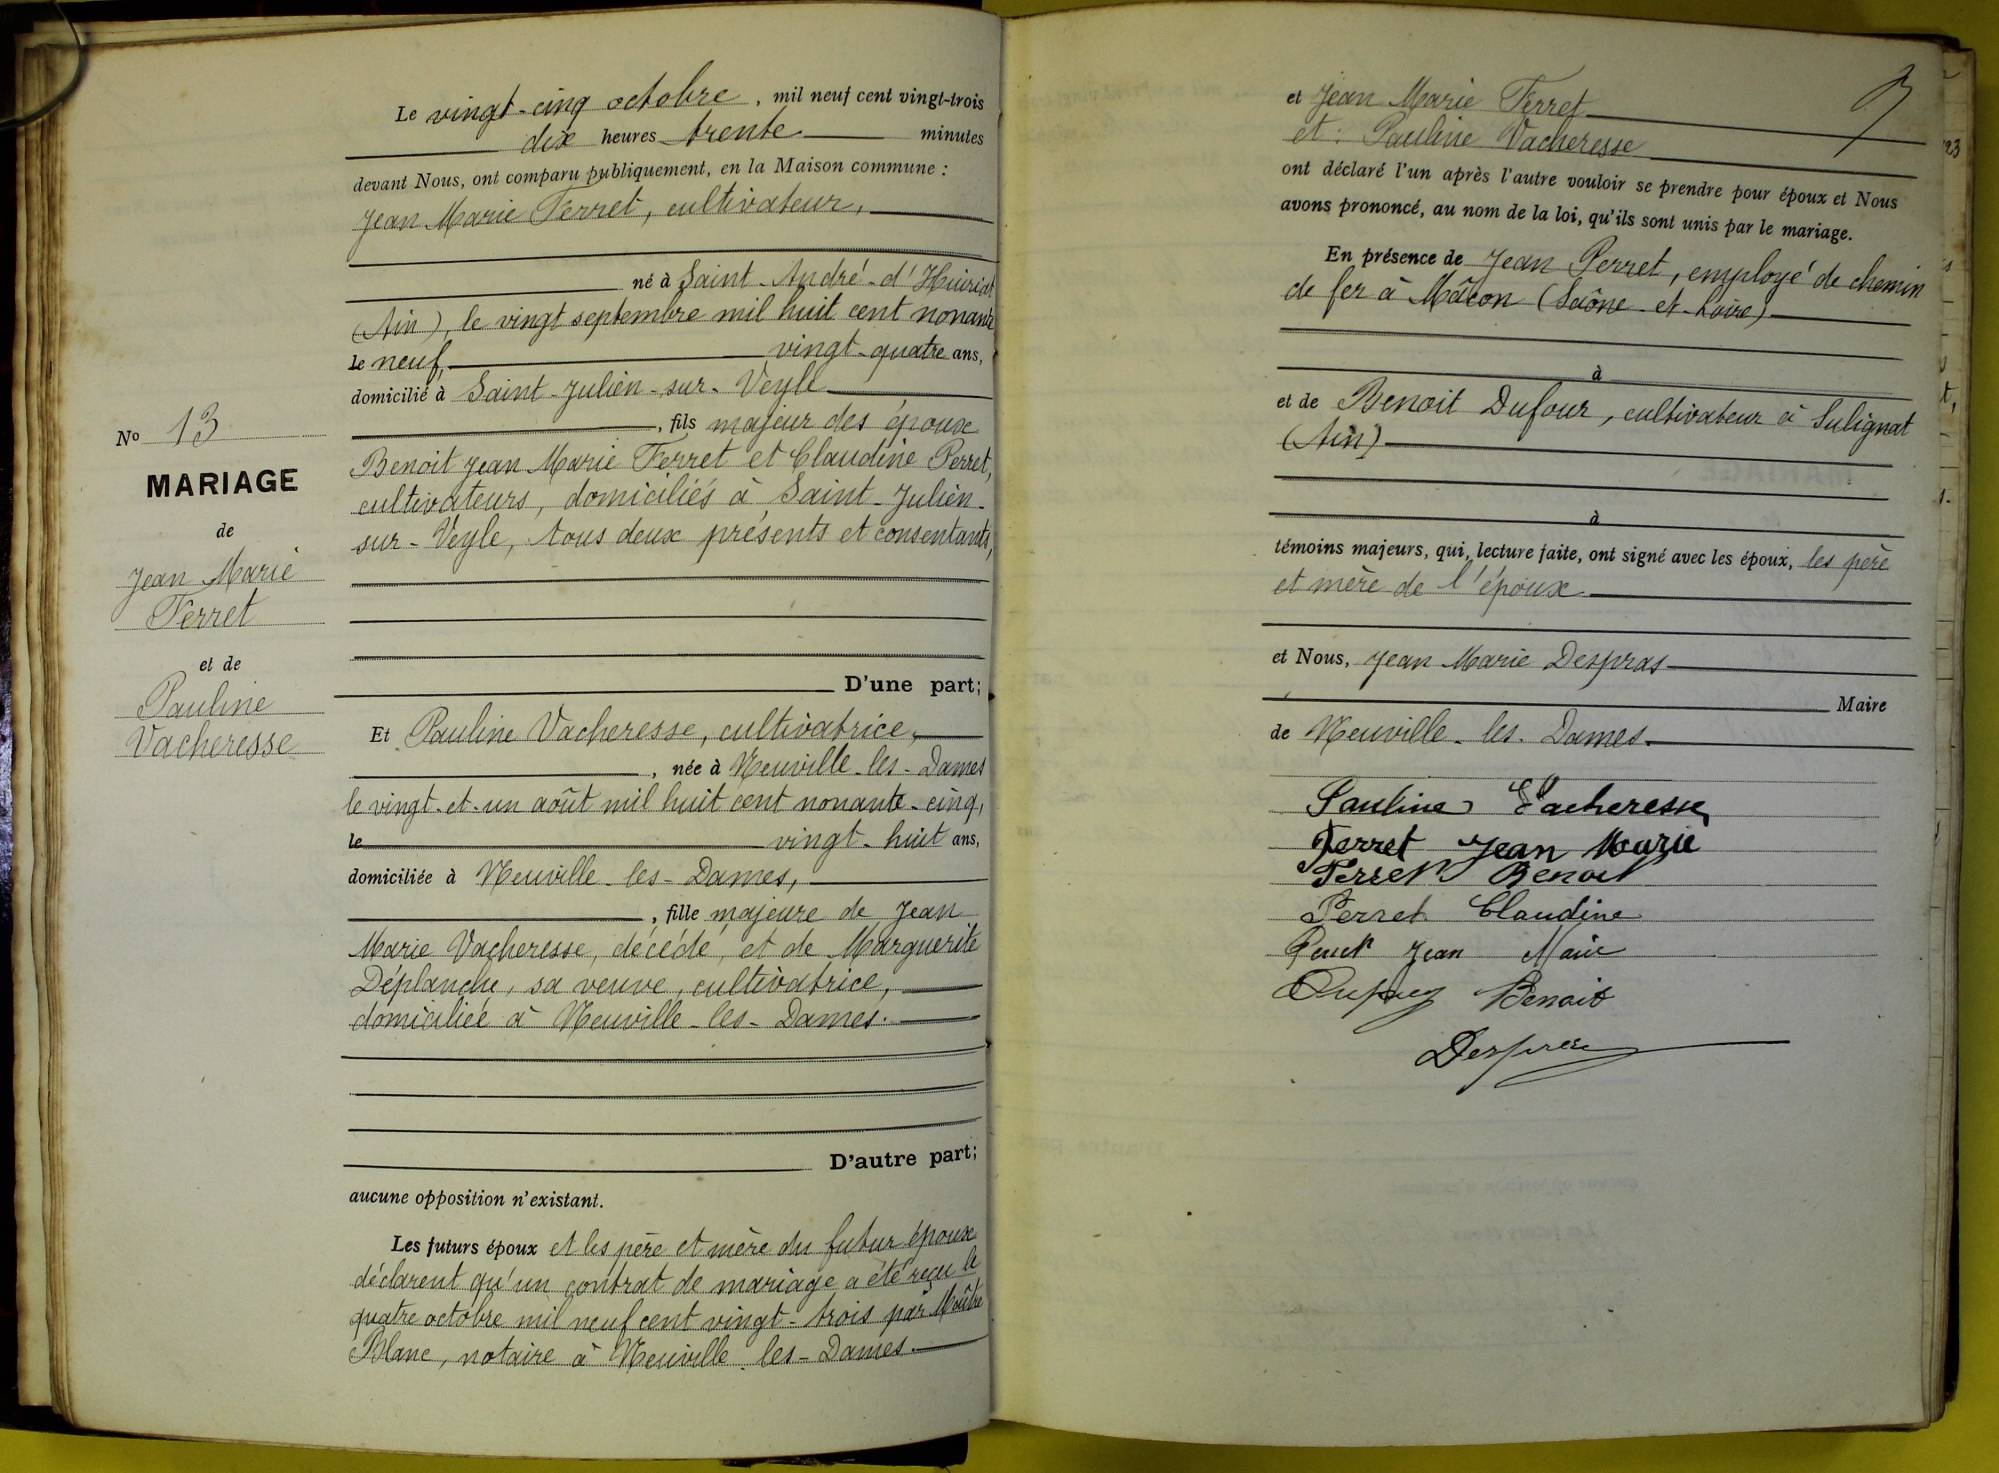 Le vingt-cinq octobre, mil neuf cent vingt-trois
dix heures trente minutes
devant Nous, ont comparu publiquement, en la Maison commune :
Jean Marie Ferret, cultivateur,
né à Saint-André-d'Huiriat
(Ain), le vingt septembre mil huit cent nonante
le neuf, vingt-quatre ans,
domicilié à Saint-Julien-sur-Veyle
, fils majeur des époux
Benoit Jean Marie Ferret et Claudine Perret,
cultivateurs, domiciliés à Saint-Julien-
sur-Veyle, tous deux présents et consentants,
D'une part;
No 13
MARIAGE
de
Jean Marie
Ferret
et de
Pauline
Vacheresse
Et Pauline Vacheresse, cultivatrice,
, née à Neuville-les-Dames
le vingt-et-un août mil huit cent nonante-cinq,
le vingt-huit ans,
domiciliée à Neuville-les-Dames,
, fille majeure de Jean
Marie Vacheresse, décédé, et de Marguerite
Déplanche, sa veuve, cultivatrice,
domiciliée à Neuville-les-Dames.
D'autre part;
aucune opposition n'existant.
Les futurs époux et les père et mère du futur époux
déclarent qu'un contrat de mariage a été reçu le
quatre octobre mil neuf cent vingt-trois par Maître
Blanc, notaire à Neuville-les-Dames.
et Jean Marie Ferret
et : Pauline Vacheresse
ont déclaré l'un après l'autre vouloir se prendre pour époux et Nous
avons prononcé, au nom de la loi, qu'ils sont unis par le mariage.
En présence de Jean Perret, employé de chemin
de fer à Mâcon (Saône-et-Loire)
à
et de Benoit Dufour, cultivateur à Sulignat
(Ain)
à
témoins majeurs, qui, lecture faite, ont signé avec les époux, les père
et mère de l'époux
et Nous, Jean Marie Despras
Maire
de Neuville-les-Dames.
Pauline Vacheresse
Ferret Jean Marie
Ferret Benoit
Perret Claudine
Perret Jean Marie
Benoit
Despras